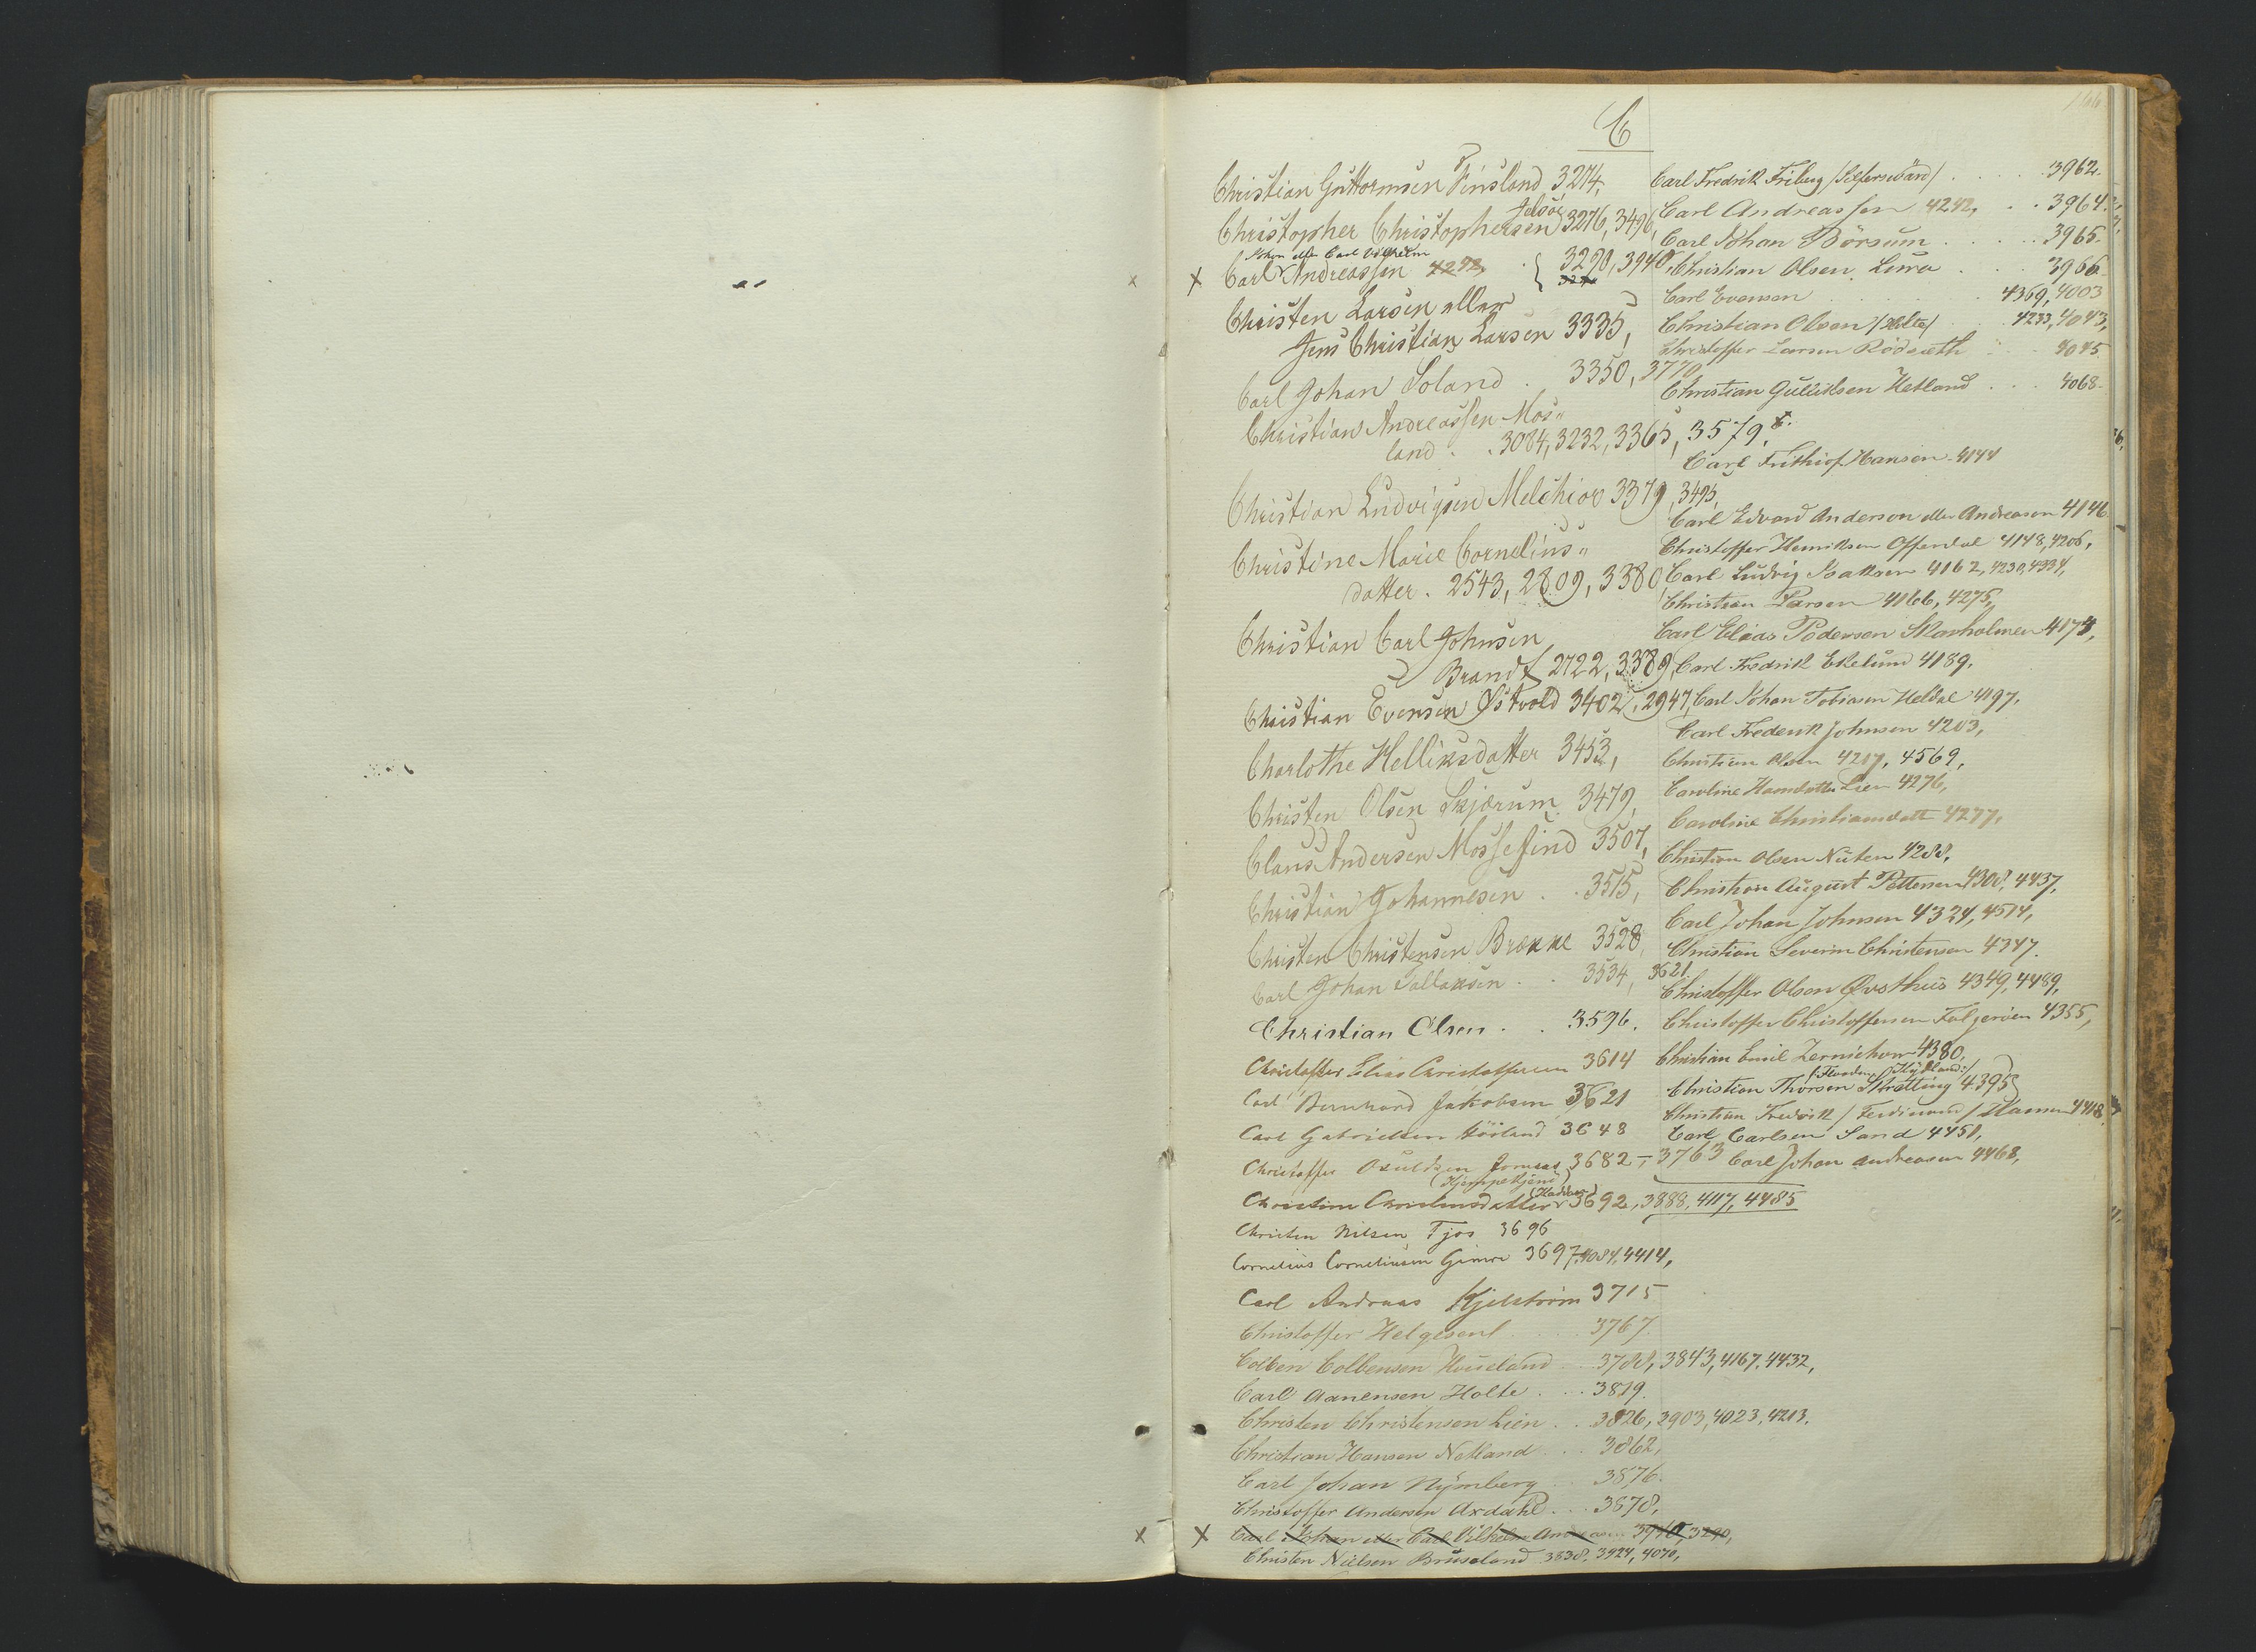 166
C
Christian Guttormsen Finsland 3274,
Jelsöe
Christopher Christophersen 3276, 3496,
Johan eller Carl Vilhelm
x Carl Andreassen 4242, 3290, 3940,
Christen Larsen eller
Jens Christian Larsen 3335,
Carl Johan Soland . 3350, 3770,
Christian Andreassen Mos"
land . . 3084, 3232, 3365, 3579,
Christian Ludvigsen Melchior 3379, 3495,
Christine Marie Cornelius"
datter . 2543, 2809, 3380,
Christian Carl Johnsen
Brandt 2722, 3389,
Christian Evensen Østvold 3402, 2947,
Charlothe Helliksdatter 3453,
Christen Olsen Skjærum 3479,
Claus Andersen Mossefind 3507,
Christian Johannesen . . 3515,
Christen Christensen Brække 3528,
Carl Johan Sallaksen . . 3534, 3621.
Christian Olsen . . 3596.
Christoffer Elias Christoffersen 3614
Carl Bernhard Jakobsen 3621
Carl Gabrielsen Höiland 3648
Christoffer Osuldsen 3682 - 3763
Christine Christensdatter 3692, 3888, 4117, 4485
Christen Nilsen Tjos 3696
Cornelius Corneliusen Gimre 3697, 4084, 4414,
Carl Andreas Kjelström 3715
Christoffer Helgesen . . . 3767.
Colben Colbensen Houeland . . 3788, 3843, 4167, 4432,
Carl Aanensen Holte . . . 3819.
Christen Christensen Lien . . 3826, 3903, 4023, 4213,
Christian Hansen Netland . . . 3862,
Carl Johan Nÿmberg . . 3876.
Christoffer Andersen Axdahl . . . 3878,
x Carl Johan eller Carl Vilhelm Andreasen 3940, 3290,
Christen Nielsen Bruseland 3838, 3924, 4070,
Carl Fredrik Friberg . . . . 3962.
Carl Andreassen 4242, . . 3964.
Carl Johan Börsum . . . . 3965.
Christian Olsen Lura . . . 3966.
Carl Evensen . . . 4369, 4003
Christian Olsen /Holte/ . . 4233, 4043,
Christoffer Larsen Rödsæth . . 4045.
Christian Gulliksen Hetland . . . 4068.
Carl Frithiof Hansen 4144
Carl Edvard Anderson eller Andreasen 4146
Christoffer Henriksen Offerdal 4148, 4206,
Carl Ludvig Isaksen 4162, 4230, 4334,
Christian Larsen 4166, 4275,
Carl Elias Pedersen Skarholmen 4174,
Carl Fredrik Ekelund 4189,
Carl Johan Tobiasen Heldal 4197,
Carl Frederik Johnsen 4203,
Christian Olsen 4217, 4569,
Caroline Hansdatter Lien 4276,
Caroline Christiansdatt 4277,
Christian Olsen Nuten 4288,
Christian August Pettersen 4308, 4437,
Carl Johan Johnsen 4324, 4514,
Christian Severin Christensen 4347.
Christoffer Olsen Øvsthus 4349, 4489,
Christoffer Christoffersen Folgeröen 4355,
Christian Emil Zernichow 4380,
Christian Thorsen Skrætting 4395
Christian Fredrik / Ferdinand / Hansen 4418,
Carl Carlsen Sand 4451,
Carl Johan Andreasen 4468,